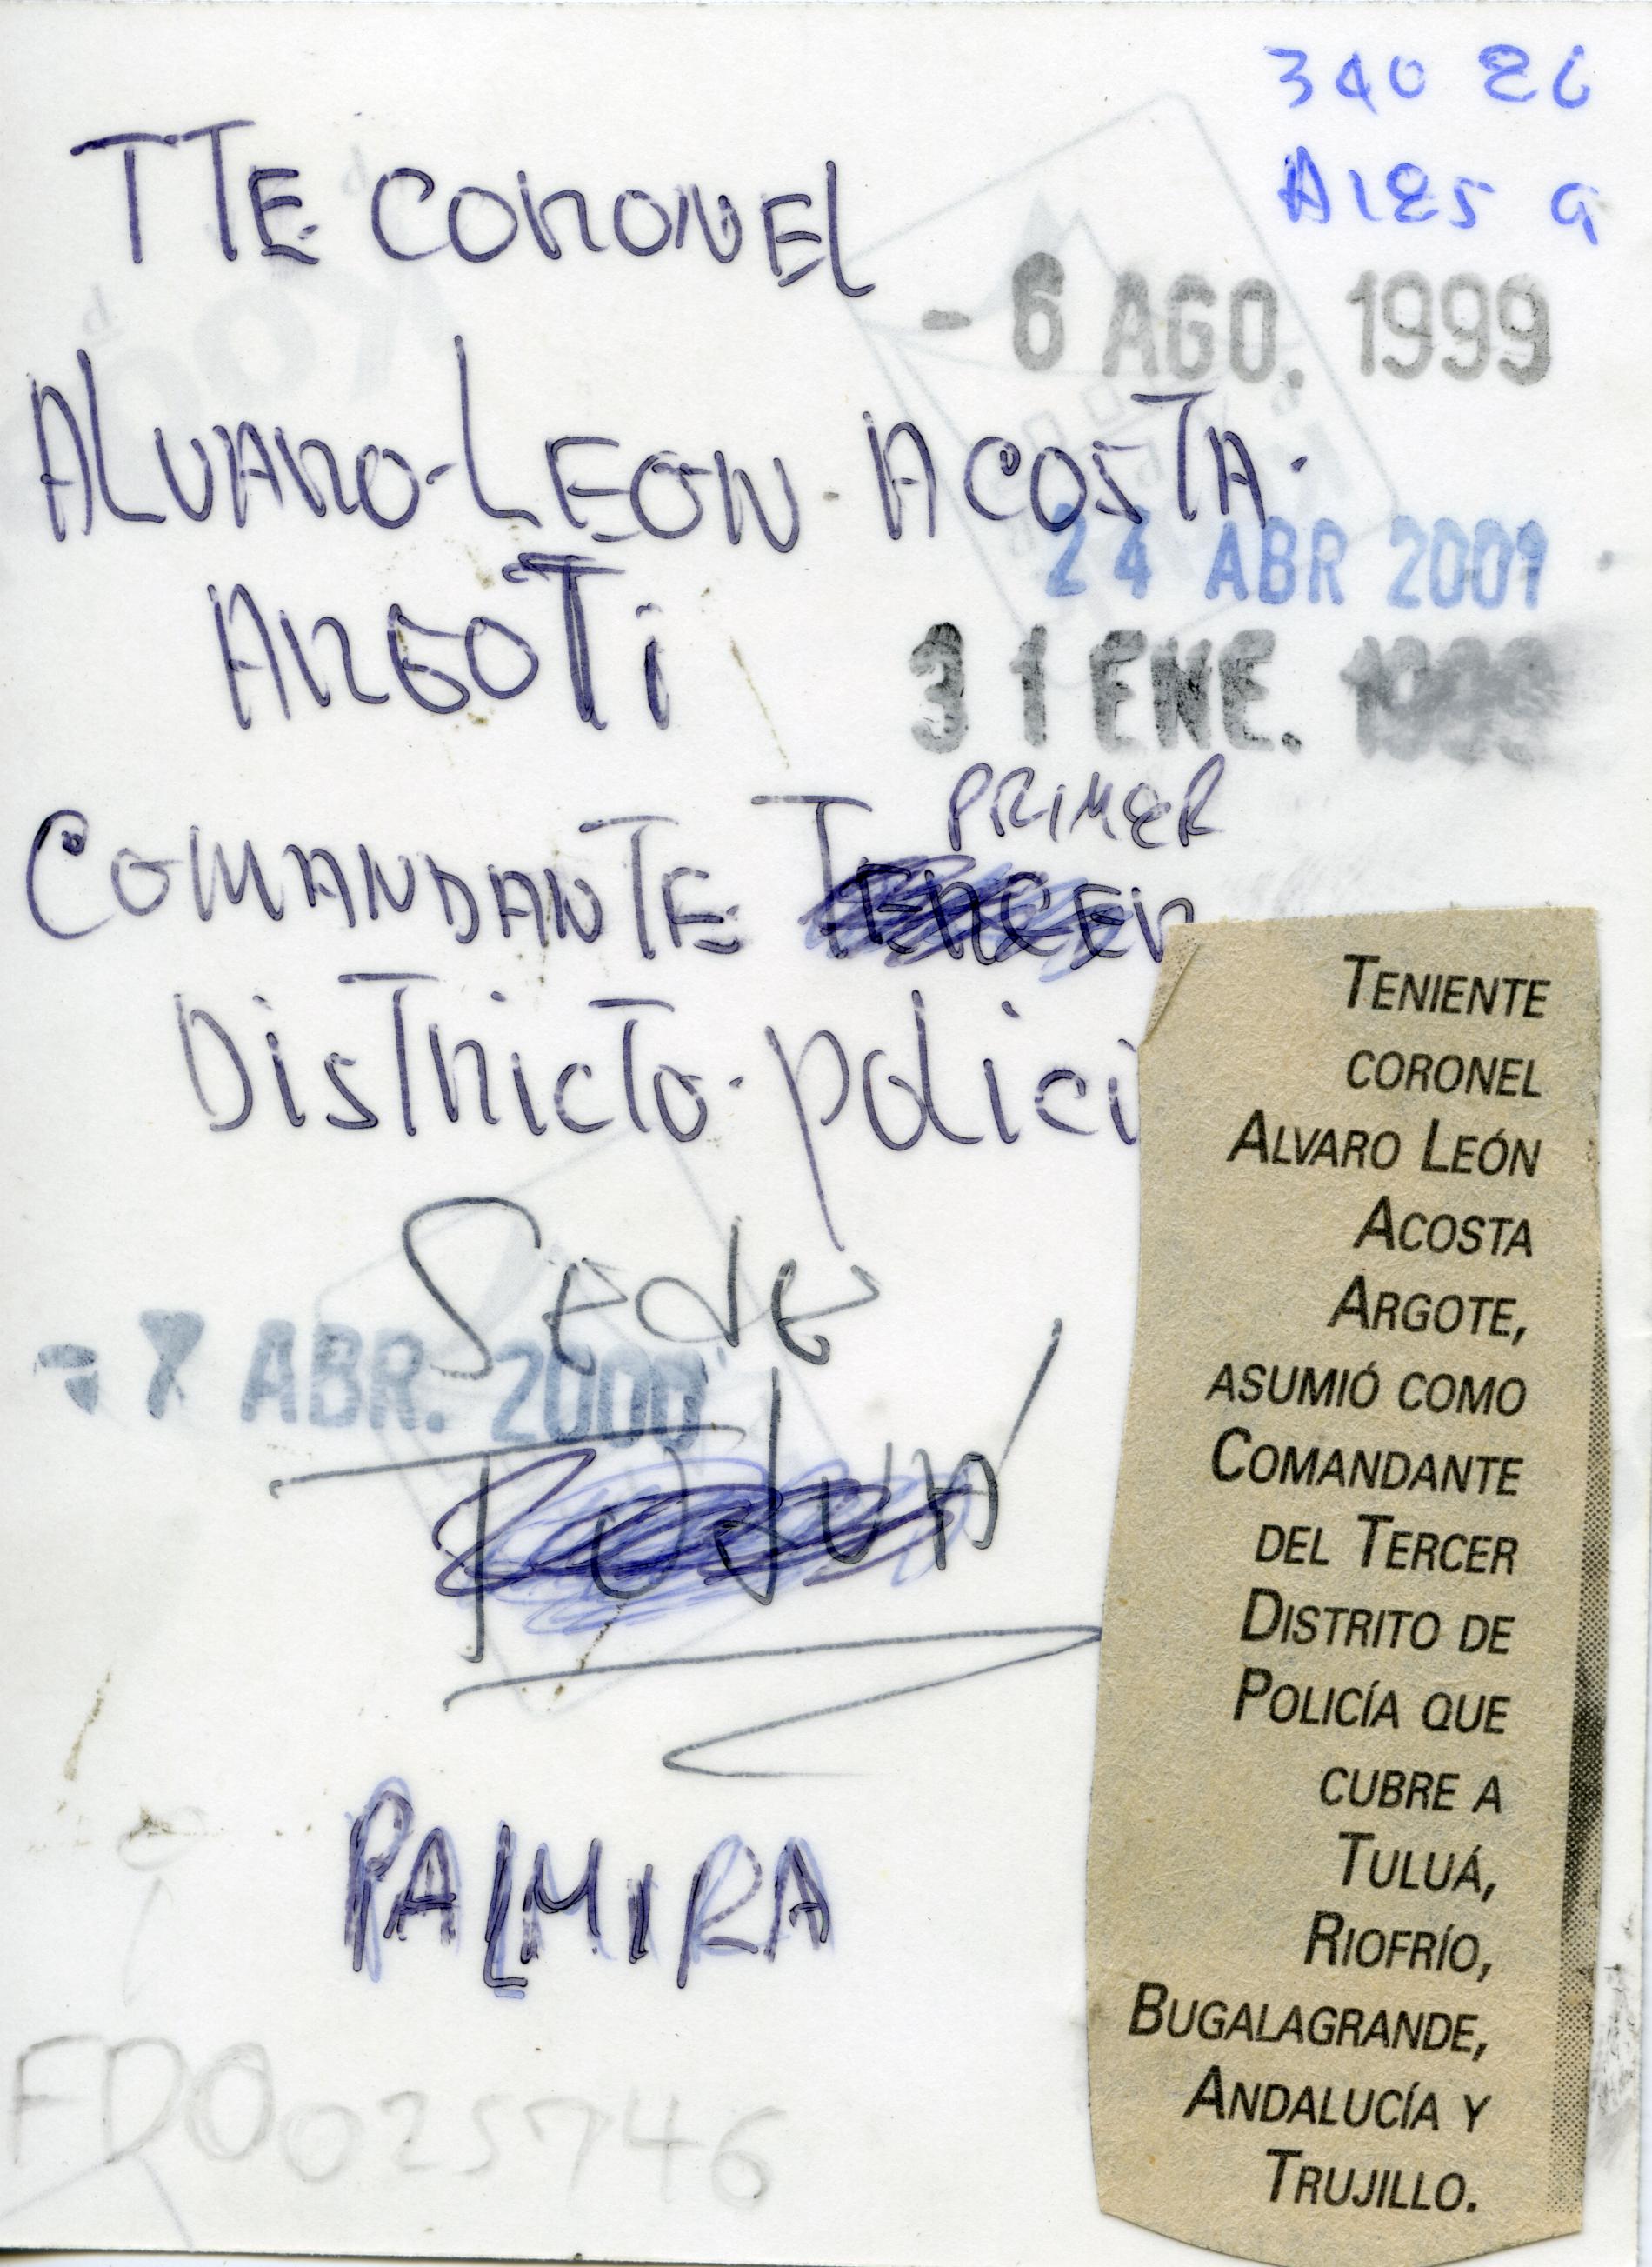 340 26
A125 9
TTE CORONEL
- 6 AGO. 1999
ALVARO-LEON-ACOSTA-
24 ABR 2001
ARGOTi
31 ENE.
PRIMER
COMANDANTE TERCER
DISTRICTO-polici
Sede
- 7 ABR. 2000
TULUÁ
PALMIRA
FDO025746
TENIENTE
CORONEL
ALVARO LEÓN
ACOSTA
ARGOTE,
ASUMIÓ COMO
COMANDANTE
DEL TERCER
DISTRITO DE
POLICÍA QUE
CUBRE A
TULUÁ,
RIOFRÍO,
BUGALAGRANDE,
ANDALUCÍA Y
TRUJILLO.